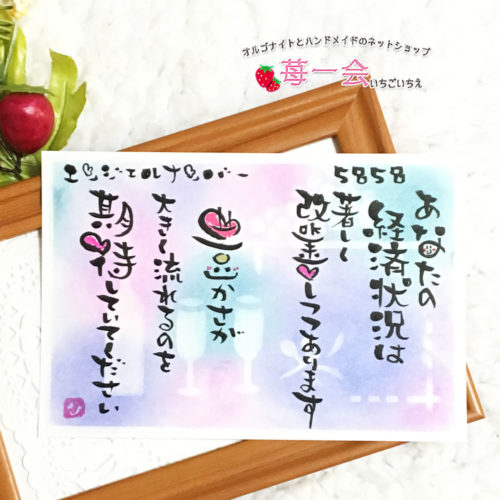 オルゴナイトとハンドメイドのネットショップ
苺一会
いちごいちえ
エンジェルナンバー 5858
あなたの
経済状況は
著しく
改善しつつあります
豊かさが
大きく流れるのを
期待していてください